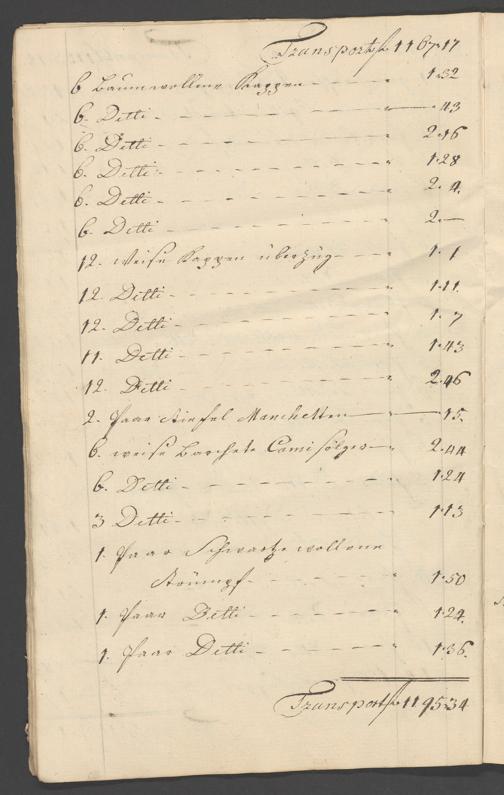 Transport f 1167.17
6 Baumwollene Kappen - - - " 1.32
6. Detti - - - " — 43
6. Detti - - - " 2.16
6. Detti - - - " 1.28
6. Detti - - - " 2.4.
6. Detti - - - " 2.—
12. weise Kappen überzüg - - - " 1.1
12. Detti - - - " 1.11.
12. Detti - - - " 1.7
11. Detti - - - " 1.43
12. Detti - - - " 2.46
2. Paar Stiefel Manchetten — " — 15.
6. weise Barchete Camisölger - " 2.44
6. Detti - - - " 1.24
3 Detti - - - " 1.13
1. Paar Schwartze wollene
Strümpf - - - " 1.50
1. Paar Detti - - - " 1.24.
1. Paar Detti - - - " 1.36.
Transport f 1195.34